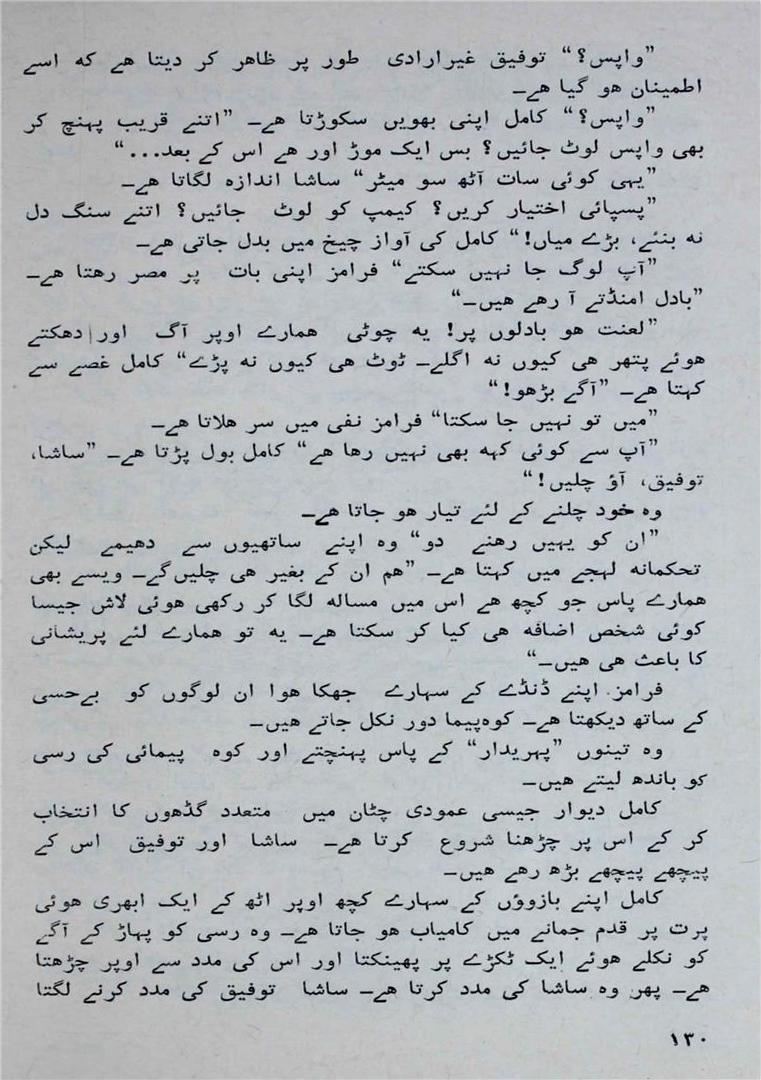 ”واپس؟“ توفیق غیرارادی طور پر ظاہر کر دیتا ھے کہ اسے
اطمینان ھو گیا ھے۔
”واپس؟“ کامل اپنی بھویں سکوڑتا ھے۔ ”اتنے قریب پہنچ کر
بھی واپس لوٹ جائیں؟ بس ایک موڑ اور ھے اس کے بعد...“
”یہی کوئی سات آٹھ سو میٹر“ ساشا اندازہ لگاتا ھے۔
”پسپائی اختیار کریں؟ کیمپ کو لوٹ جائیں؟ اتنے سنگ دل
نہ بنئے، بڑے میاں!“ کامل کی آواز چیخ میں بدل جاتی ھے۔
”آپ لوگ جا نہیں سکتے“ فرامز اپنی بات پر مصر رھتا ھے۔
”بادل امنڈتے آ رھے ھیں۔“
”لعنت ھو بادلوں پر! یہ چوٹی ھمارے اوپر آگ اور دھکتے
ھوئے پتھر ھی کیوں نہ اگلے۔ ٹوٹ ھی کیوں نہ پڑے“ کامل غصے سے
کہتا ھے۔ ”آگے بڑھو!“
”میں تو نہیں جا سکتا“ فرامز نفی میں سر ھلاتا ھے۔
”آپ سے کوئی کہہ بھی نہیں رھا ھے“ کامل بول پڑتا ھے۔ ”ساشا،
توفیق، آؤ چلیں!“
وہ خود چلنے کے لئے تیار ھو جاتا ھے۔
”ان کو یہیں رھنے دو“ وہ اپنے ساتھیوں سے دھیمے لیکن
تحکمانہ لہجے میں کہتا ھے۔ ”ھم ان کے بغیر ھی چلیں‌گے۔ ویسے بھی
ھمارے پاس جو کچھ ھے اس میں مسالہ لگا کر رکھی ھوئی لاش جیسا
کوئی شخص اضافہ ھی کیا کر سکتا ھے۔ یہ تو ھمارے لئے پریشانی
کا باعث ھی ھیں۔“
فرامز اپنے ڈنڈے کے سہارے جھکا ھوا ان لوگوں کو بےحسی
کے ساتھ دیکھتا ھے۔ کوہ‌پیما دور نکل جاتے ھیں۔
وہ تینوں ”پہریدار“ کے پاس پہنچتے اور کوہ پیمائی کی رسی
کو باندھ لیتے ھیں۔
کامل دیوار جیسی عمودی چٹان میں متعدد گڈھوں کا انتخاب
کر کے اس پر چڑھنا شروع کرتا ھے۔ ساشا اور توفیق اس کے
پیچھے پیچھے بڑھ رھے ھیں۔
کامل اپنے بازوؤں کے سہارے کچھ اوپر اٹھ کے ایک ابھری ھوئی
پرت پر قدم جمانے میں کامیاب ھو جاتا ھے۔ وہ رسی کو پہاڑ کے آگے
کو نکلے ھوئے ایک ٹکڑے پر پھینکتا اور اس کی مدد سے اوپر چڑھتا
ھے۔ پھر وہ ساشا کی مدد کرتا ھے۔ ساشا توفیق کی مدد کرنے لگتا
۱۳۰